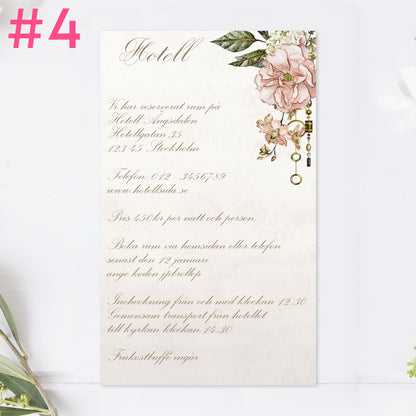 #4
Hotell
Vi har reserverat rum på
Hotell Ängsdalen
Hotellgatan 35
123 45 Stockholm
Telefon: 012 - 3456789
www.hotellsida.se
Pris 450kr per natt och person.
Boka rum via hemsidan eller telefon
senast den 12 januari
ange koden jpbrollop
Incheckning från och med klockan 12.30
Gemensam transport från hotellet
till kyrkan klockan 14.30.
Frukostbuffé ingår